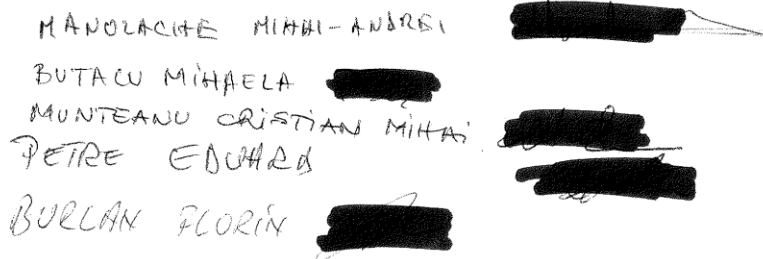 MANOLACHE MIHAI-ANDREI
BUTACU MIHAELA
MUNTEANU CRISTIAN MIHAI
PETRE EDUARD
BURLAN FLORIN